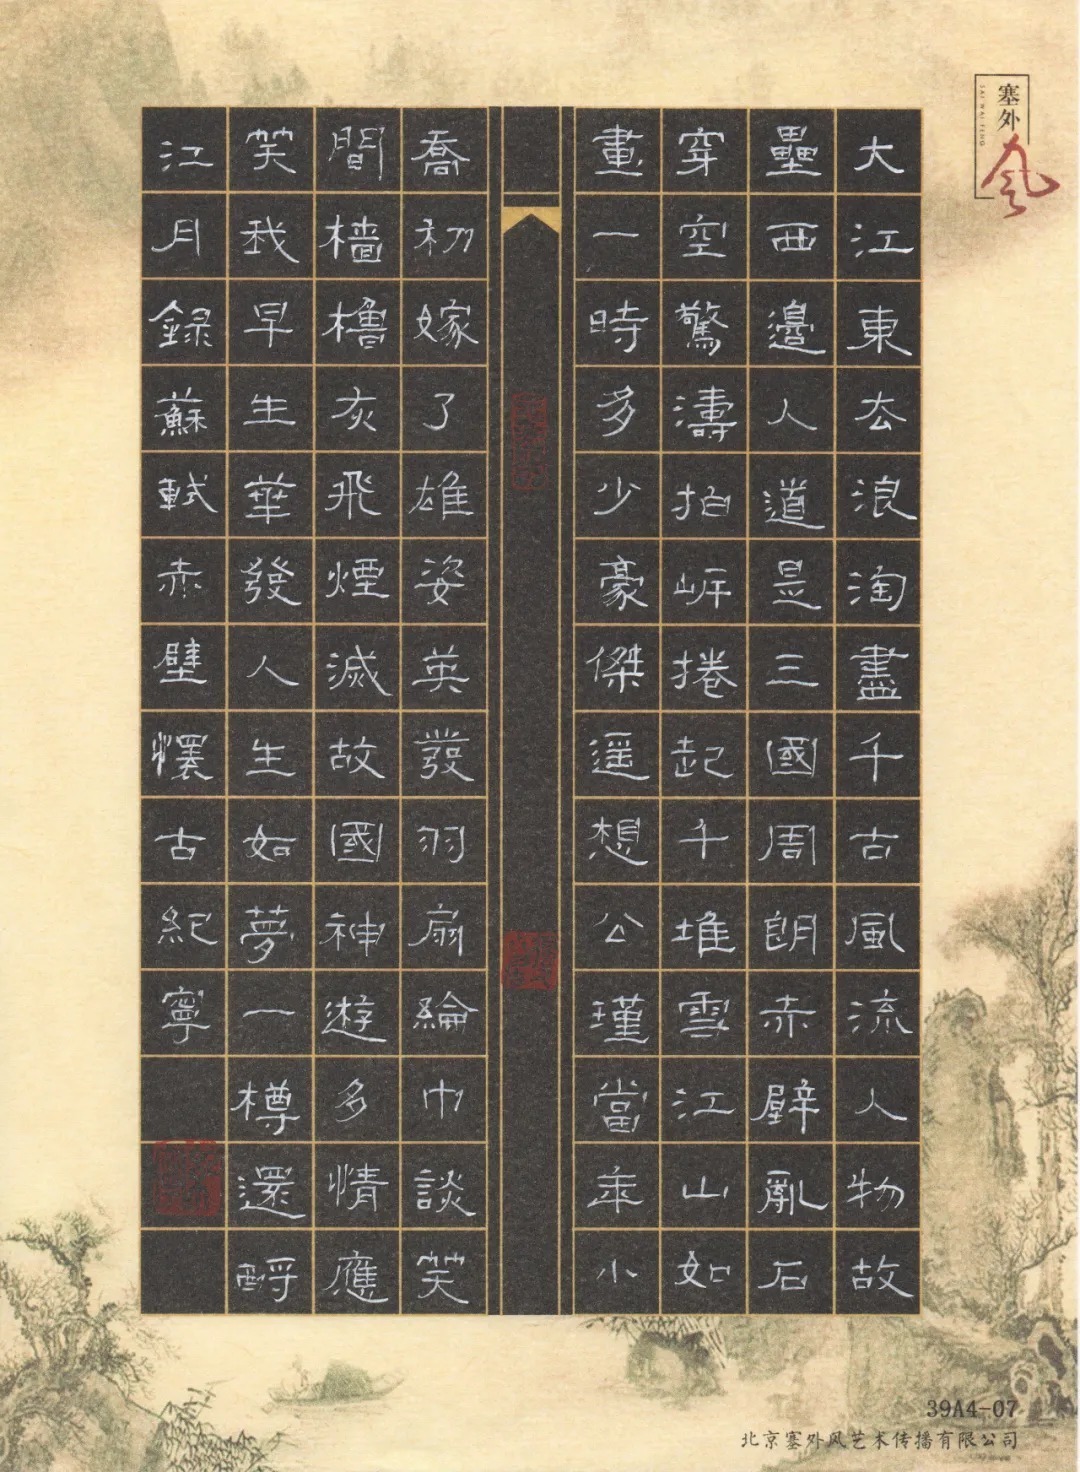 塞外风
SAI WAI FENG
大江東去浪淘盡千古風流人物故
壘西邊人道是三國周朗赤壁亂石
穿空驚濤拍岸捲起千堆雪江山如
畫一時多少豪傑遥想公瑾當年小
喬初嫁了雄姿英發羽扇綸巾談笑
間檣櫓灰飛煙滅故國神遊多情應
笑我早生華發人生如夢一樽還酹
江月録蘇軾赤壁懷古紀寧
39A4-07
北京塞外风艺术传播有限公司